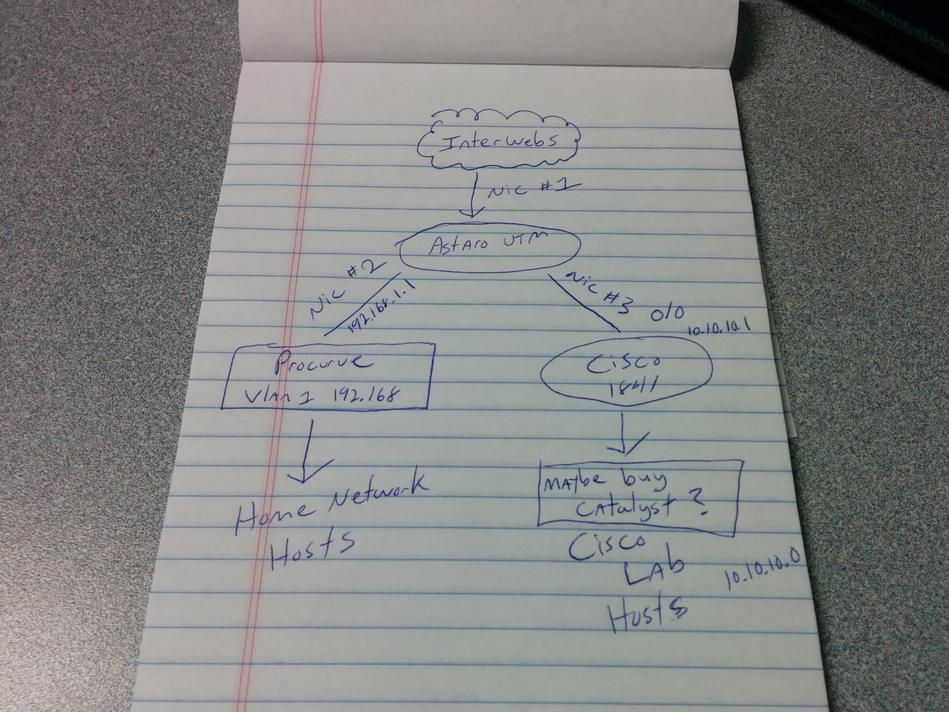 Interwebs
Nic #1
Astaro UTM
Nic #2
192.168.1.1
Nic #3 0/0
10.10.10.1
Procurve
Vlan 1 192.168
Cisco
1841
Home Network
Hosts
MAybe buy
CAtalyst ?
Cisco
LAb
Hosts
10.10.10.0